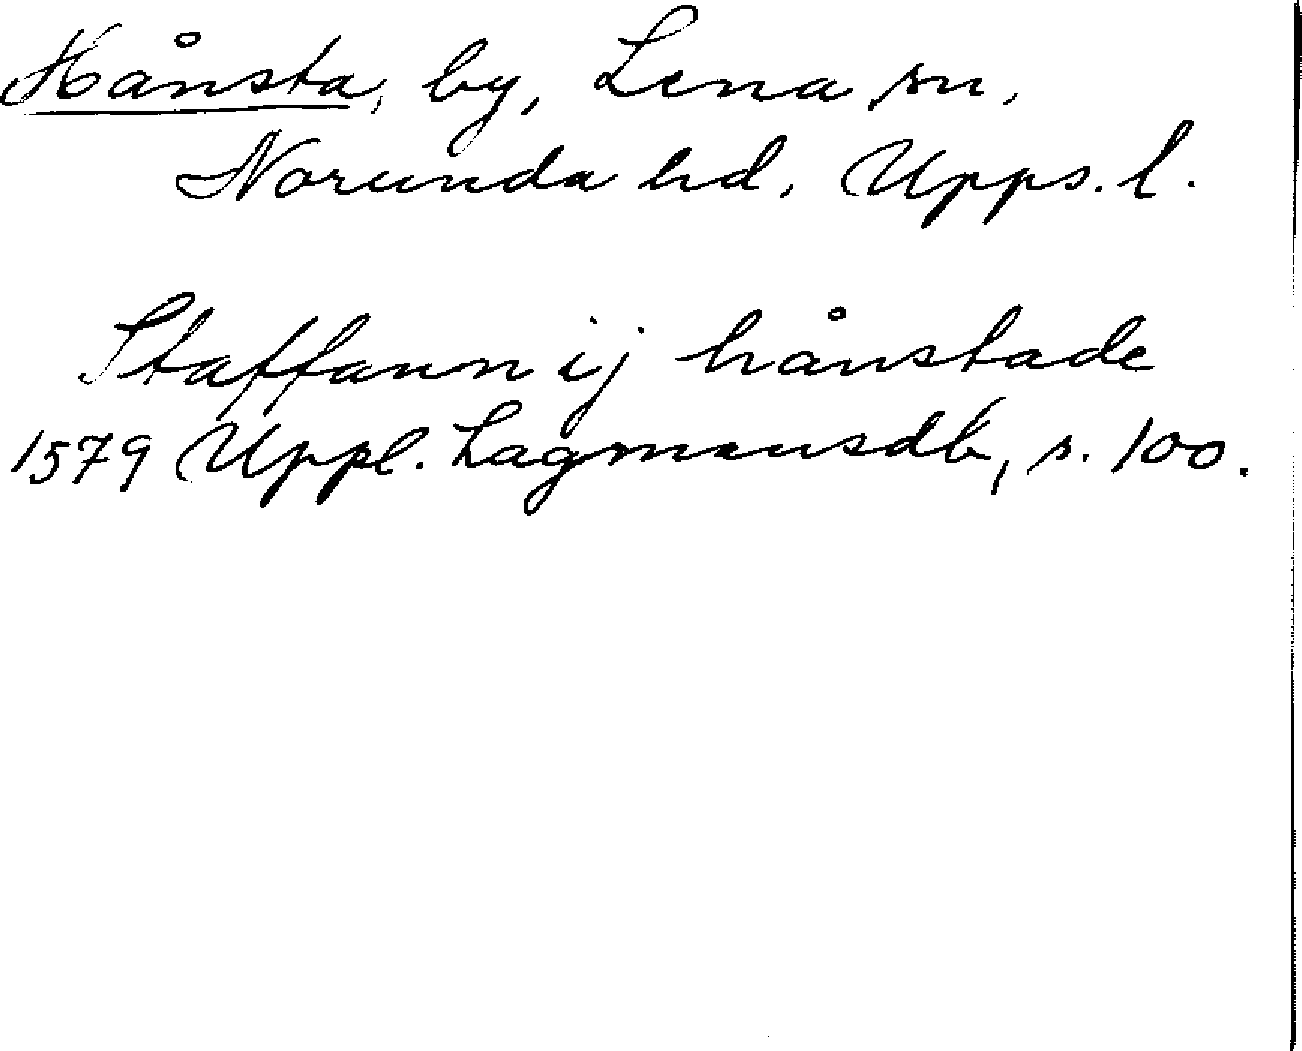 Hånsta, by, Lena sn,
Norunda hd, Upps. l.
Staffann ij hånstade
1579 Uppl. Lagmansdb, s. 100.